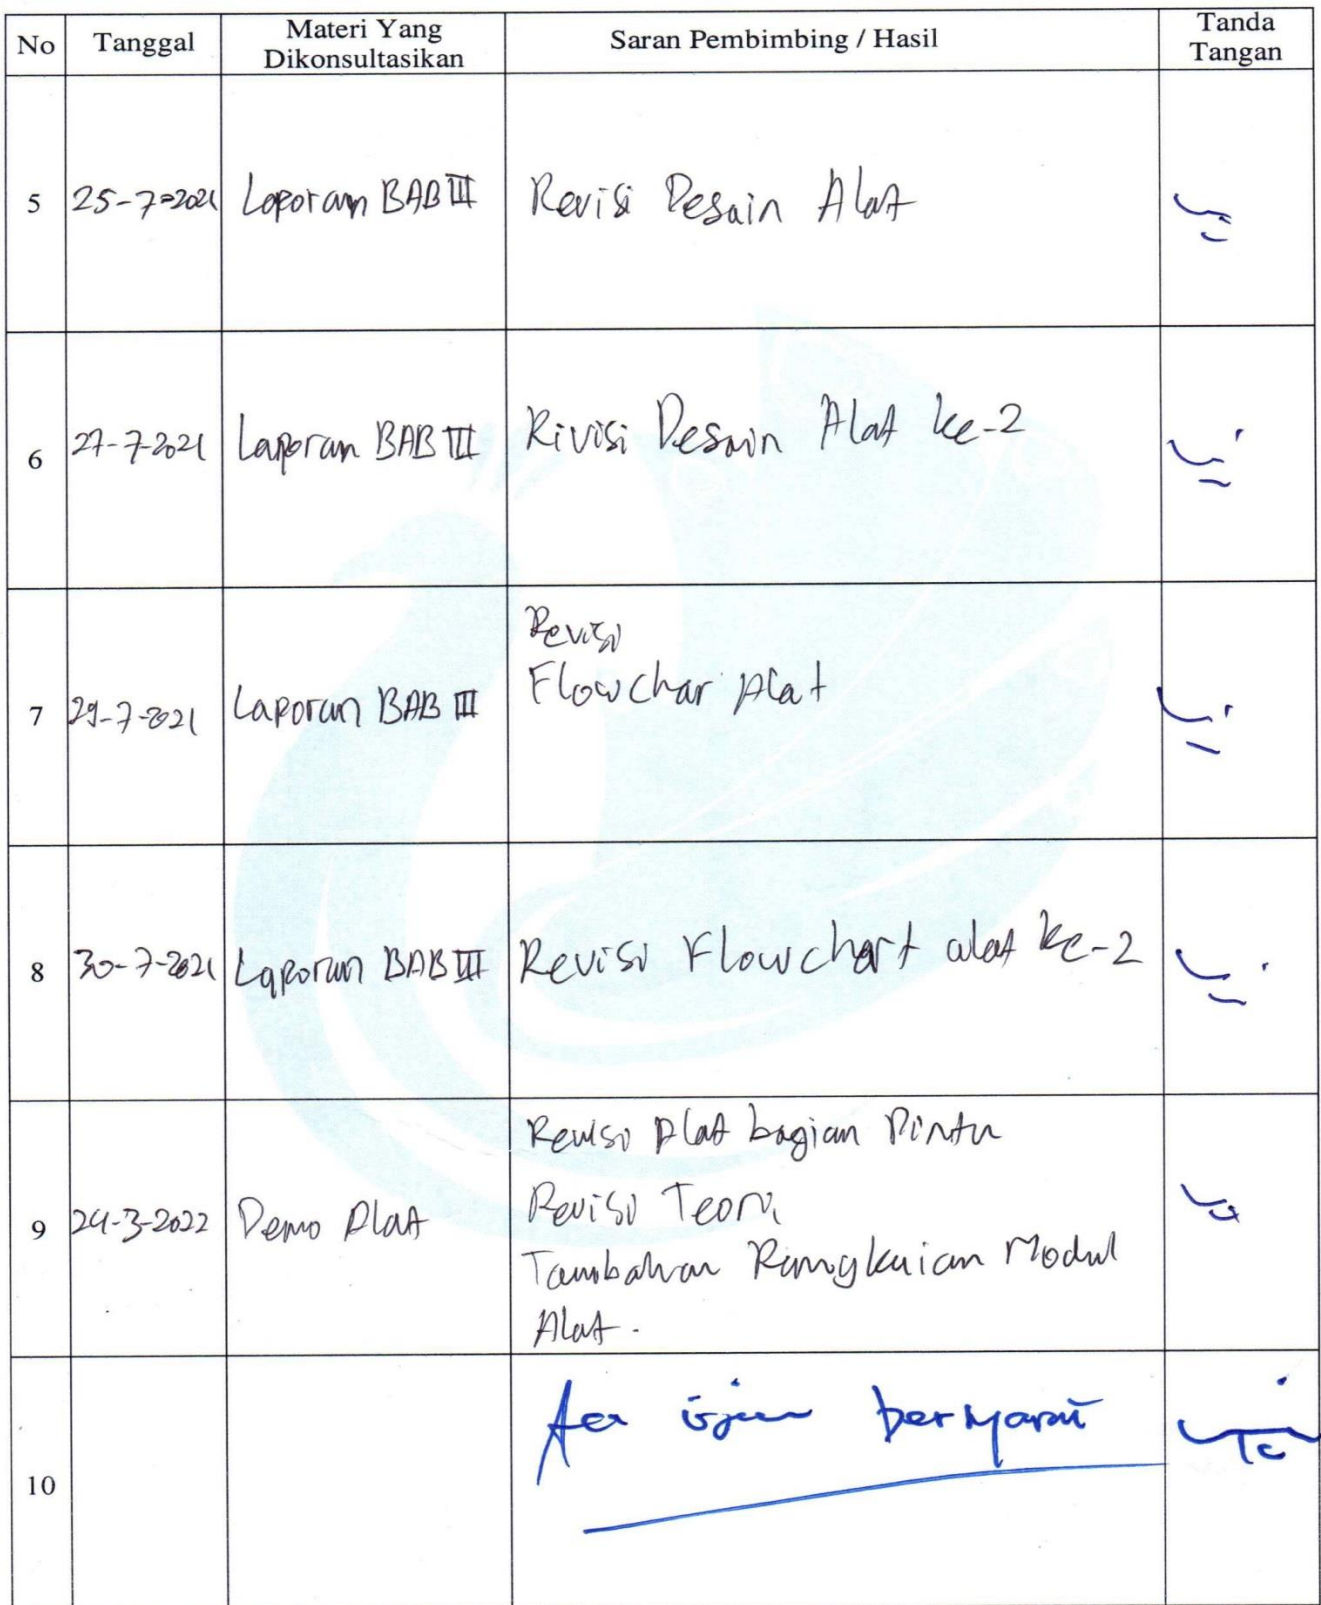 No Tanggal Materi Yang Dikonsultasikan Saran Pembimbing / Hasil Tanda Tangan
5 25-7-2021 Laporan BAB III Revisi Desain Alat
6 27-7-2021 Laporan BAB III Rivisi Desain Alat ke-2
7 29-7-2021 Laporan BAB III Revisi
Flowchar Alat
8 30-7-2021 Laporan BAB III Revisi Flowchart alat ke-2
9 24-3-2022 Demo Alat Revisi Alat bagian Pintu
Revisi Teori
Tambahan Rangkaian Modul
Alat.
10 Acc ujian bersyarat